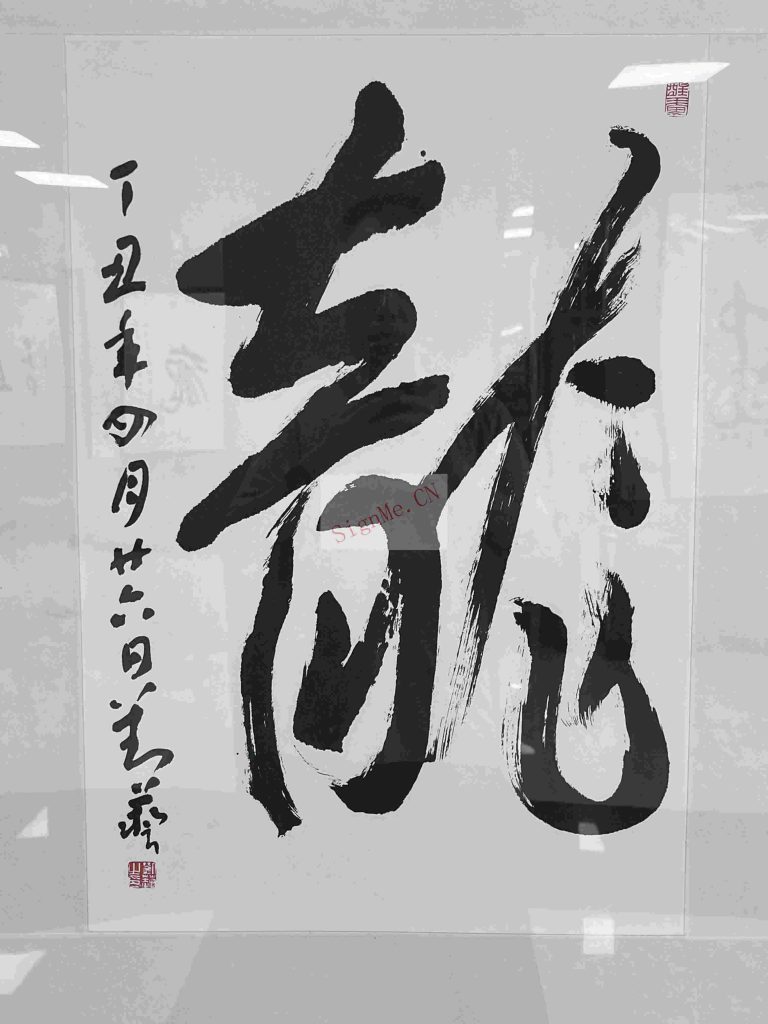 龍
丁丑年四月廿六日劉藝
SignMe.CN